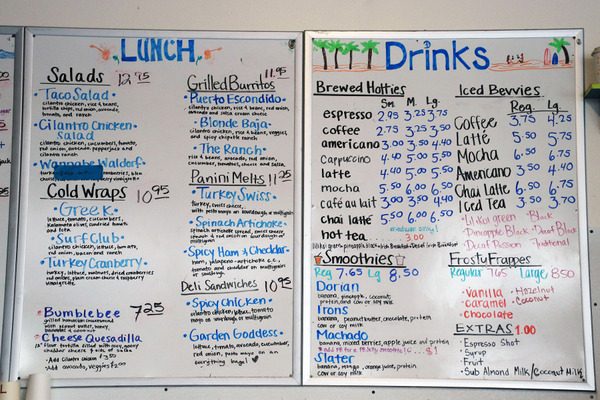 LUNCH
Salads 12.95
• Taco Salad •
cilantro chicken, rice & beans,
tortilla chips, red onion, avocado,
tomato, and ranch
• Cilantro Chicken
Salad
cilantro chicken, cucumbers, tomato,
red onion, avocado, pepperjack and
cilantro ranch
• Wannabe Waldorf •
Cold Wraps 10.95
• Greek •
lettuce, tomato, cucumbers,
and feta
• Surf Club •
bacon, chicken, lettuce, tomato,
red onion,
• Turkey Cranberry •
turkey, lettuce, walnuts, dried cranberries
• Bumblebee 7.25
grilled
with peanut butter, honey,
banana & coconut
• Cheese Quesadilla
12" flour tortilla filled with
cheddar cheese & side of salsa
• Add cilantro chicken
• Add avocado, veggies $2.00
Grilled Burritos 11.95
Puerto Escondido •
cilantro chicken, rice & beans, red onion,
avocado and salsa cream cheese
• Blonde Baja •
cilantro chicken, rice & beans, veggies
and spicy chipotle ranch
• The Ranch •
rice & beans, avocado, red onion,
cucumber, tomatoes, cheese and salsa
Panini Melts 11.25
• Turkey Swiss •
turkey, swiss cheese,
with
• Spinach Artichoke •
spinach artichoke spread,
• Spicy Ham & Cheddar
ham, jalapeno-artichoke
tomato and cheddar on multigrain
or sourdough
Deli Sandwiches 10.95
• Spicy Chicken •
cilantro chicken, lettuce, tomato
mayo on sourdough or multigrain
• Garden Goddess •
lettuce, tomato, avocado, cucumber,
red onion, pesto mayo on an
everything bagel
Drinks
Brewed Hotties
Sm. M. Lg.
espresso 2.95 3.25 3.75
coffee 2.75 3.25 3.50
americano 3.00 3.50 4.40
cappuccino 4.40 5.00 5.50
latte 4.40 5.00 5.50
mocha 5.50 6.00 6.50
café au lait 3.00 3.50 4.40
chai latte 5.50 6.00 6.50
hot tea... 3.00
Smoothies
Reg 7.65 Lg 8.50
Dorian
banana, pineapple, coconut,
protein, and cow or soy milk
Irons
banana, peanut butter, chocolate, protein,
cow or soy milk
Machado
banana, mixed berries, apple juice and protein
Slater
banana, mango, orange juice, protein
cow or soy milk
Iced Bevvies
Reg. Lg.
Coffee 3.75 4.25
Latte 5.50 5.75
Mocha 6.50 6.75
Americano 3.50 4.40
Chai Latte 6.50 6.75
Iced Tea 3.50 3.70
• Lil Koi green • Black
• Pineapple Black • Decaf Blue
• Decaf Passion • Traditional
Frosty Frappes
Regular 7.65 Large 8.50
• Vanilla • Hazelnut
• Caramel • Coconut
• chocolate
EXTRAS 1.00
• Espresso Shot
• Syrup
• Fruit
• Sub Almond Milk/Coconut Milk